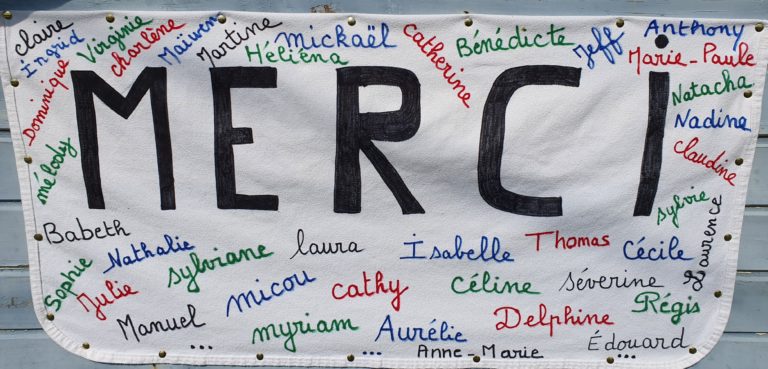 claire
Ingrid
Virginie
charlène
Maiwen
Martine
Héliéna
Mickaël
Catherine
Bénédicte
Jeff
Anthony
Marie-Paule
Dominique
Natacha
Nadine
MERCi
claudine
mélody
sylvie
Laurence
Babeth
Nathalie
sylviane
laura
Isabelle
Thomas
Cécile
Sophie
Julie
micou
cathy
céline
Séverine
Régis
Manuel ...
myriam
Aurélie
...
Anne-Marie
Delphine
Édouard
...